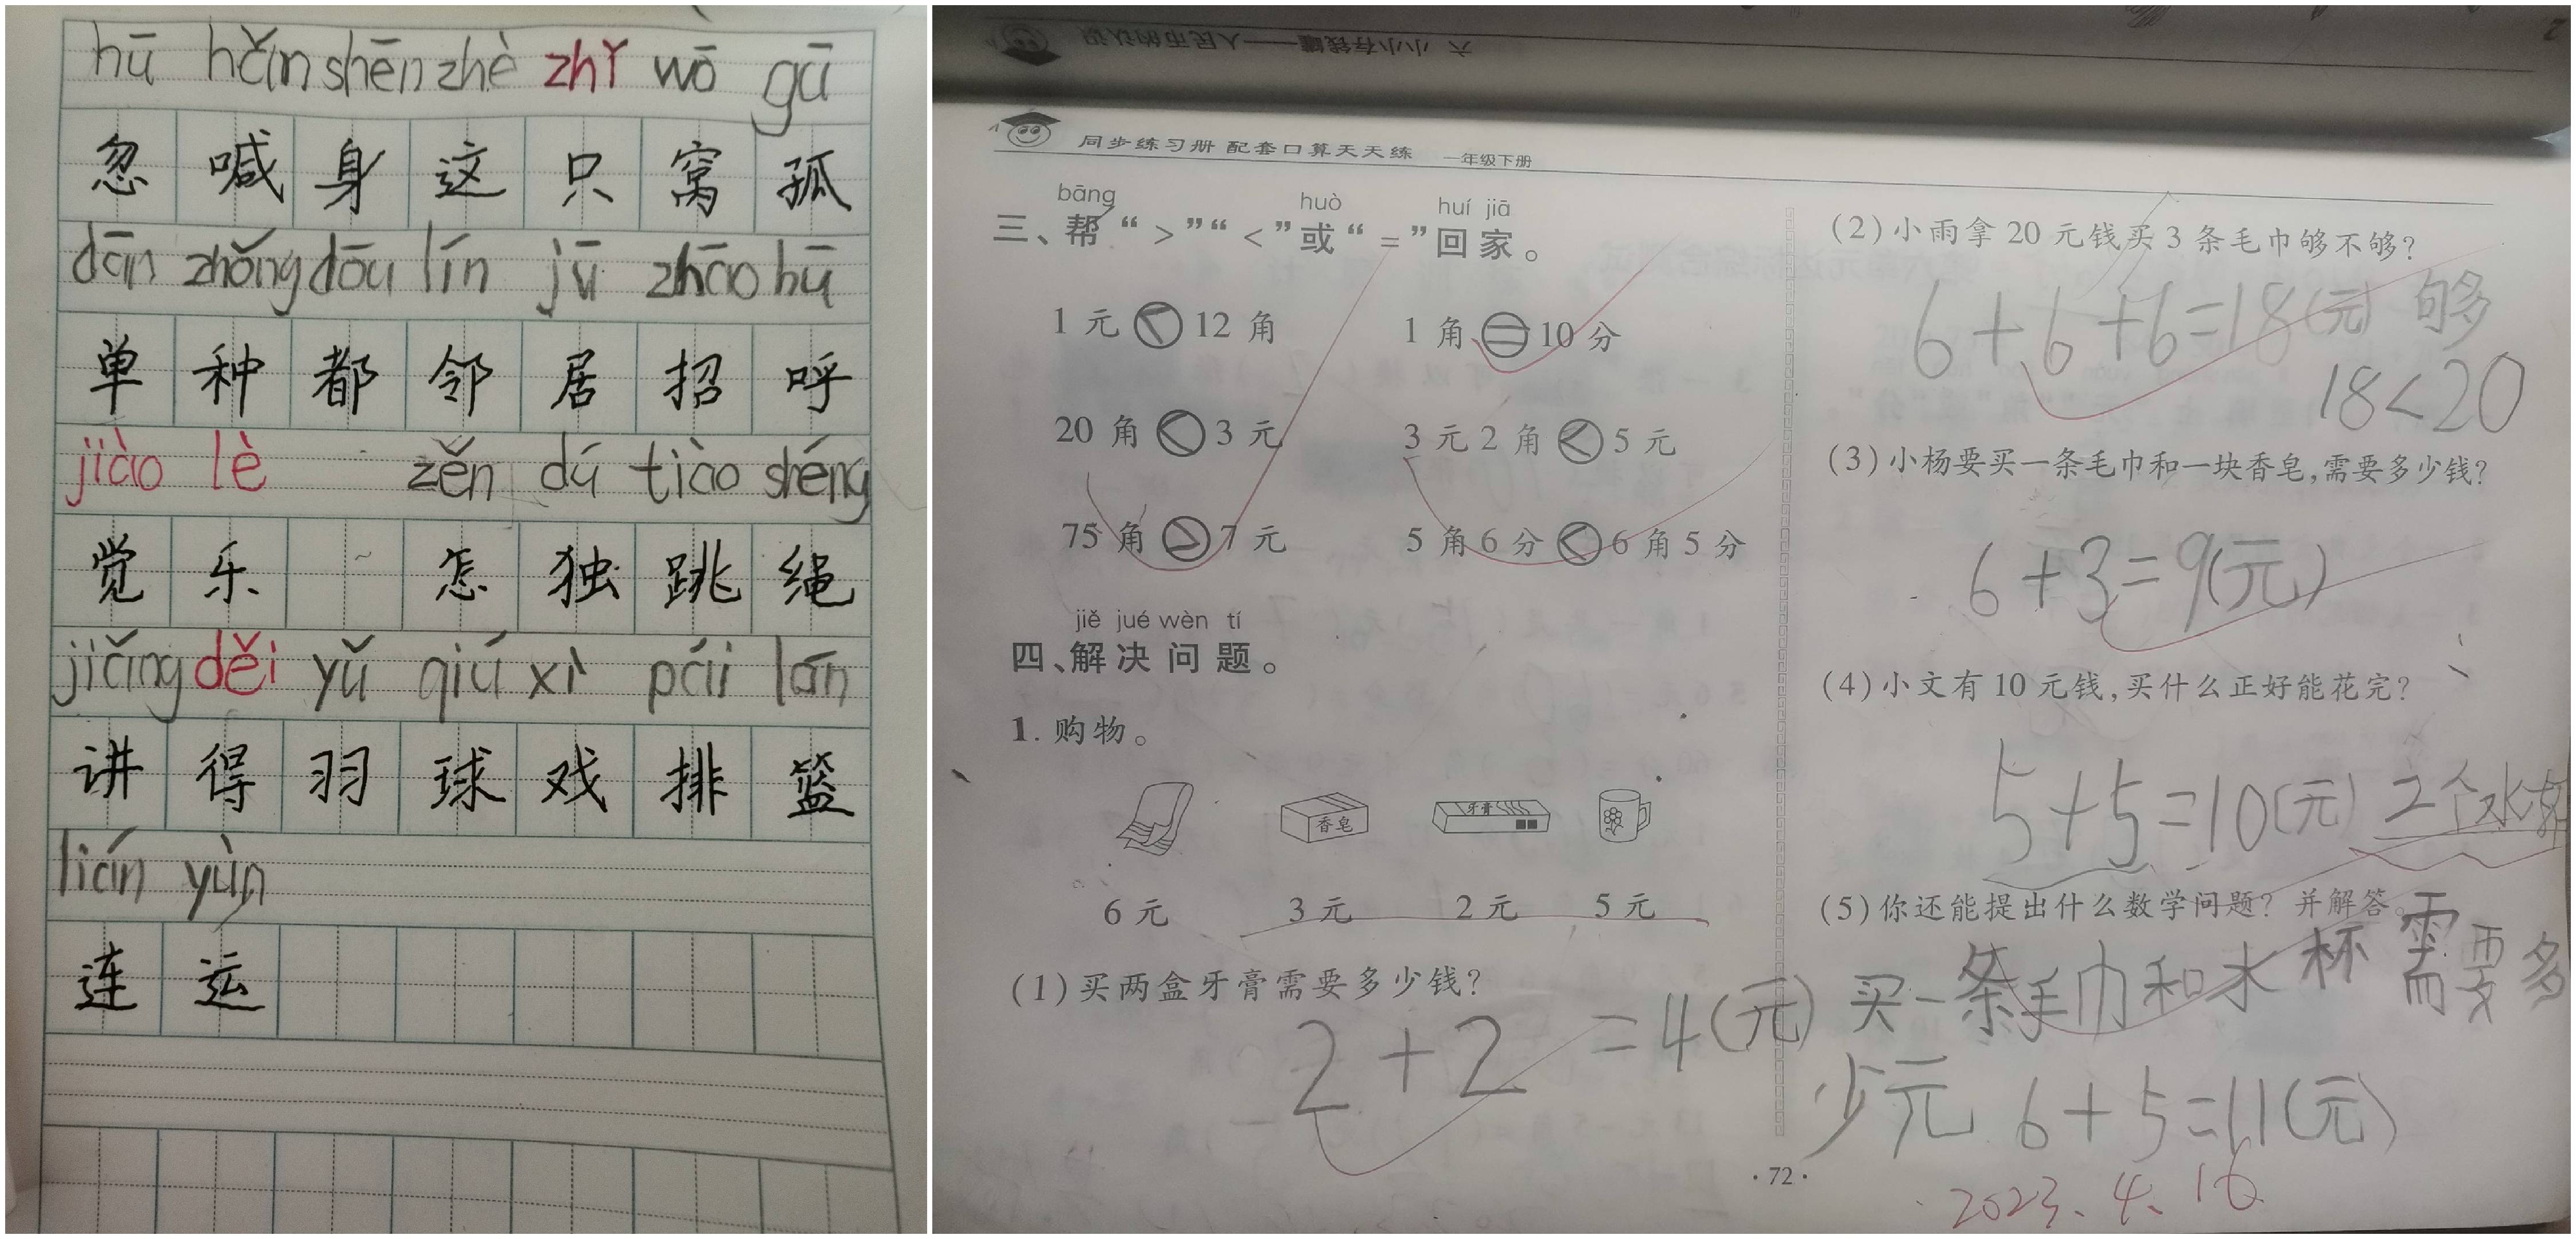 hū hǎn shēn zhè zhǐ wō gū
忽 喊 身 这 只 窝 孤
dān zhǒng dōu lín jū zhāo hū
单 种 都 邻 居 招 呼
jiào lè zěn dú tiào shéng
觉 乐 怎 独 跳 绳
jiǎng děi yǔ qiú xì pái lán
讲 得 羽 球 戏 排 篮
lián yùn
连 运
六 小小存钱罐——人民币的认识
同步练习册 配套口算天天练 一年级下册
bāng huò huí jiā
三、帮“>”“<”或“=”回家。
1元<12角 1角=10分
20角<3元 3元2角<5元
75角>7元 5角6分<6角5分
jiě jué wèn tí
四、解决问题。
1.购物。
香皂 牙膏
6元 3元 2元 5元
(1)买两盒牙膏需要多少钱?
2+2=4(元)
·72·
(2)小雨拿20元钱买3条毛巾够不够?
6+6+6=18(元) 够
18<20
(3)小杨要买一条毛巾和一块香皂,需要多少钱?
6+3=9(元)
(4)小文有10元钱,买什么正好能花完?
5+5=10(元) 2个水
(5)你还能提出什么数学问题?并解答。
买一条毛巾和水杯需要多
少元 6+5=11(元)
2023.4.16